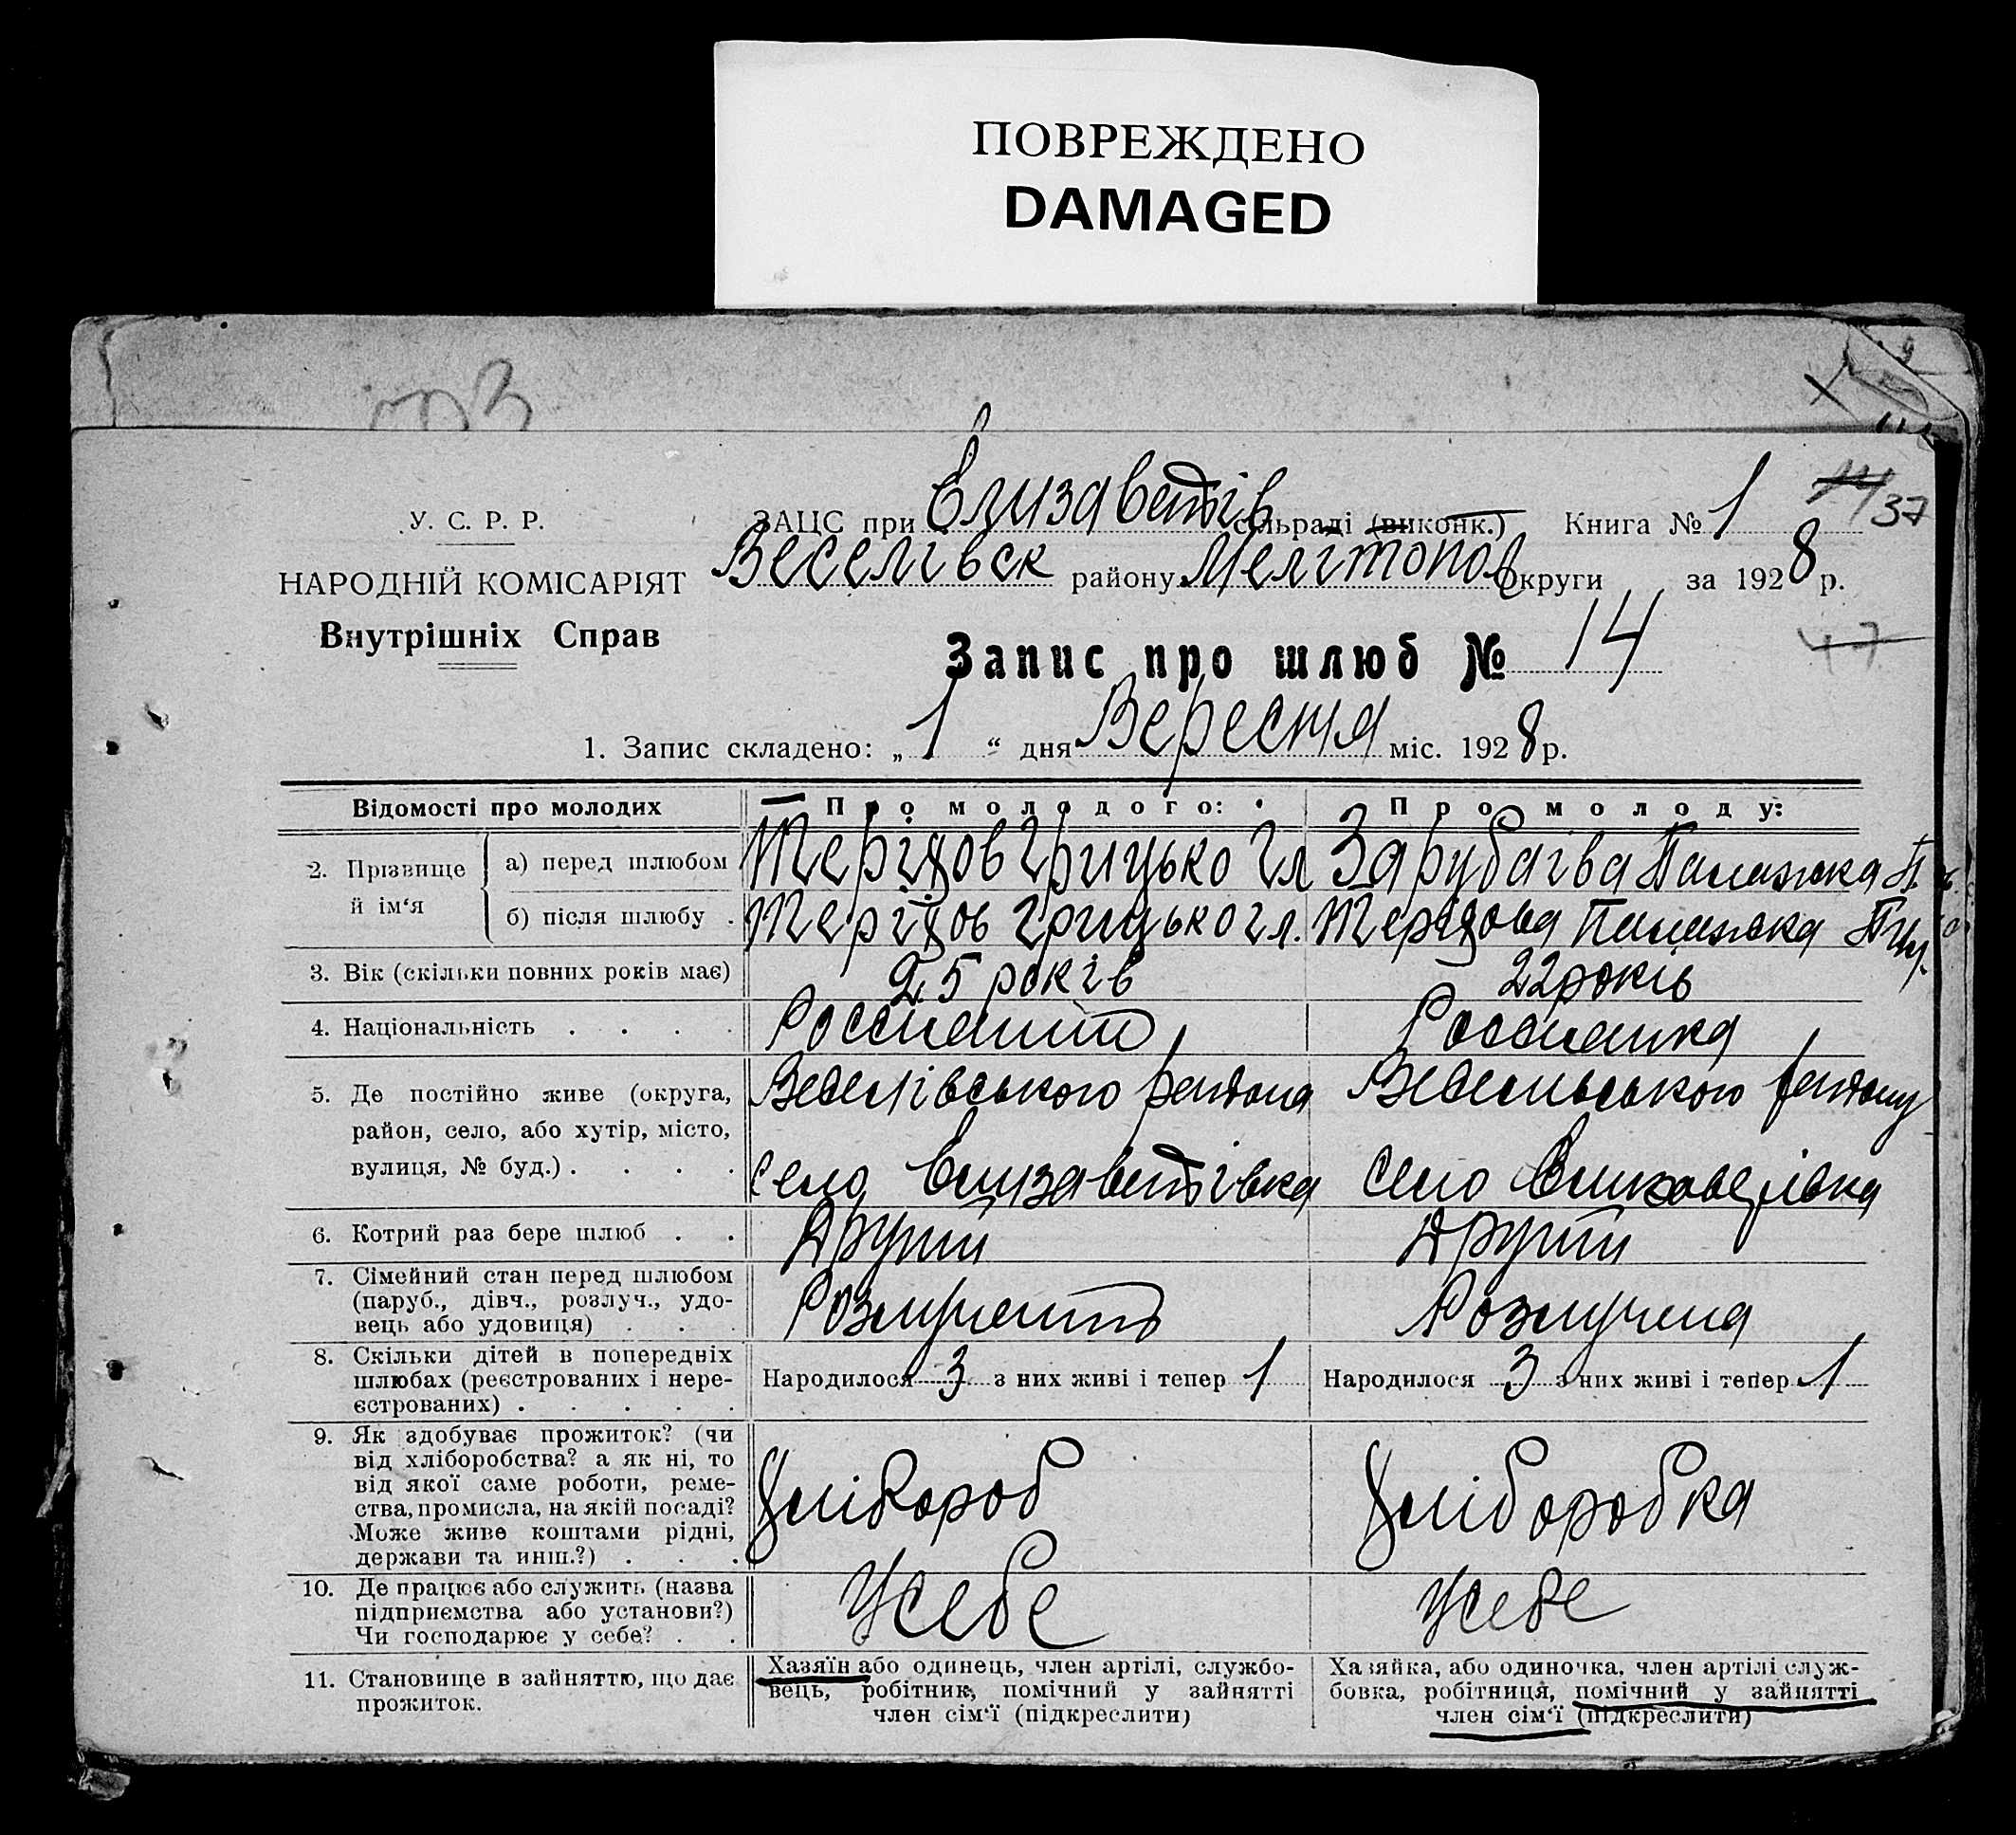 ПОВРЕЖДЕНО
DAMAGED
У. С. Р. Р.
НАРОДНІЙ КОМІСАРІЯТ
Внутрішніх Справ
ЗАЦС при Єлизаветів сільраді (виконк.) Книга № 1 37
Веселівск району Мелітопол округи за 1928 р.
Запис про шлюб № 14
47
1. Запис складено: „1“ дня Вересня міс. 1928 р.
Відомості про молодих Про молодого: Про молоду:
2. Прізвище й ім‘я
а) перед шлюбом Грицько Гл Зарубаїва Палажка П.
б) після шлюбу . Грицько Гл. Палажка
3. Вік (скільки повних років має) 25 років 22 років
4. Національність . . . . Россиянин Россианка
5. Де постійно живе (округа, район, село, або хутір, місто, вулиця, № буд.) . . . .
Веселівського района Веселівського району
село Єлизаветівка село Єлизаветівка
6. Котрий раз бере шлюб . . Другий Другий
7. Сімейний стан перед шлюбом (паруб., дівч., розлуч., удовець або удовиця) . . . Розлучена
8. Скільки дітей в попередніх шлюбах (реєстрованих і нереєстрованих) . . . . .
Народилося 3 з них живі і тепер 1 Народилося 3 з них живі і тепер 1
9. Як здобуває прожиток? (чи від хліборобства? а як ні, то від якої саме роботи, ремества, промисла, на якій посаді? Може живе коштами рідні, держави та инш.?) . . .
Хлібороб Хліборобка
10. Де працює або служить (назва підприємства або установи?) Чи господарює у себе? . .
У себе У себе
11. Становище в зайняттю, що дає прожиток.
Хазяїн або одинець, член артілі, службовець, робітник, помічний у зайнятті член сім‘ї (підкреслити)
Хазяйка, або одиночка, член артілі службовка, робітниця, помічний у зайнятті член сім‘ї (підкреслити)